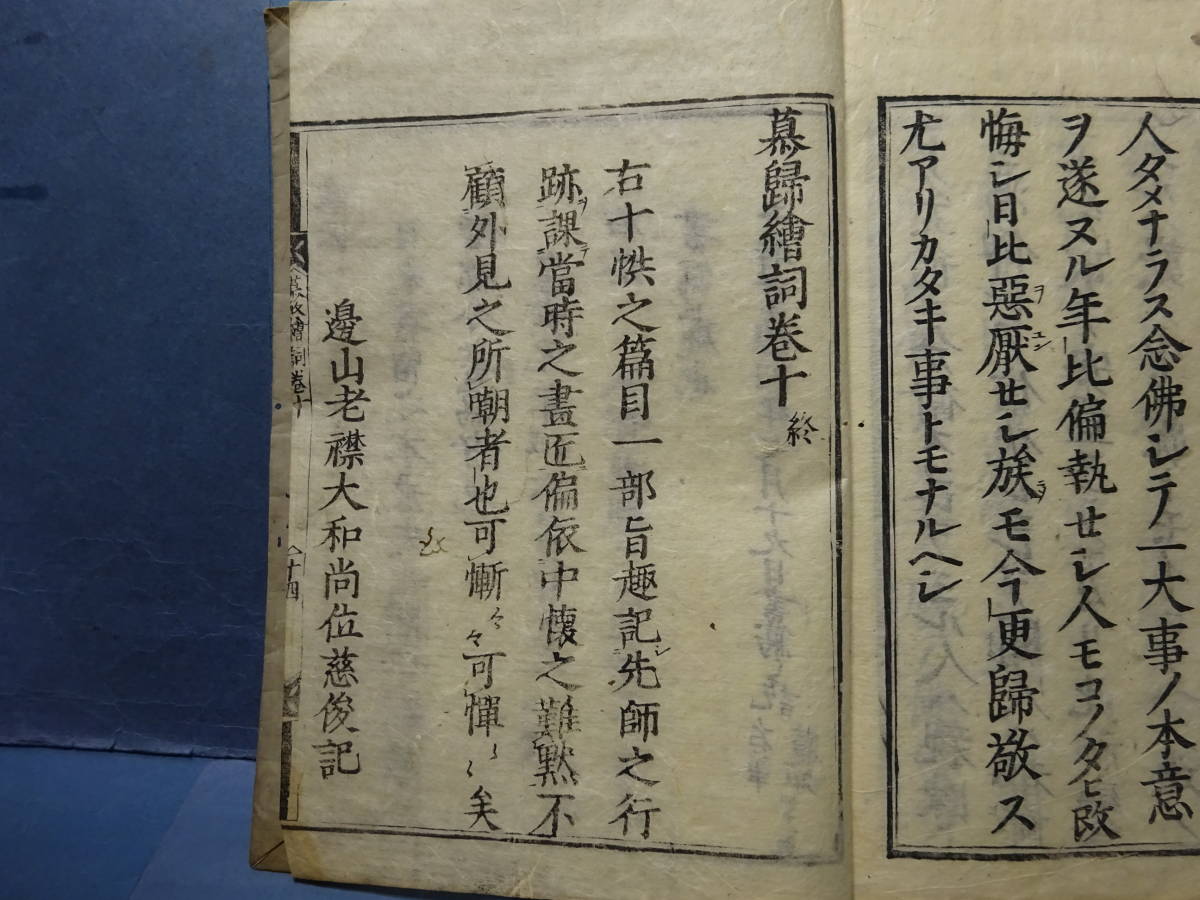 人タメナラス念佛シテ一大事ノ本意
ヲ遂ヌル年比偏執セシ人モコノタヒ改
悔シ日比惡ヲ厭ユンセシ族ラヲモ今更歸敬ス
尤アリカタキ事トモナルヘシ
慕歸繪詞卷十 終
右十帙之篇目一部旨趣記シ先師之行
跡ヲ課ラ當時之畫匠偏依中懷之難默不
顧外見之所嘲者也可慚々々可憚〻〻矣
邊山老襟大和尚位慈俊記
慕歸繪詞卷十
十四